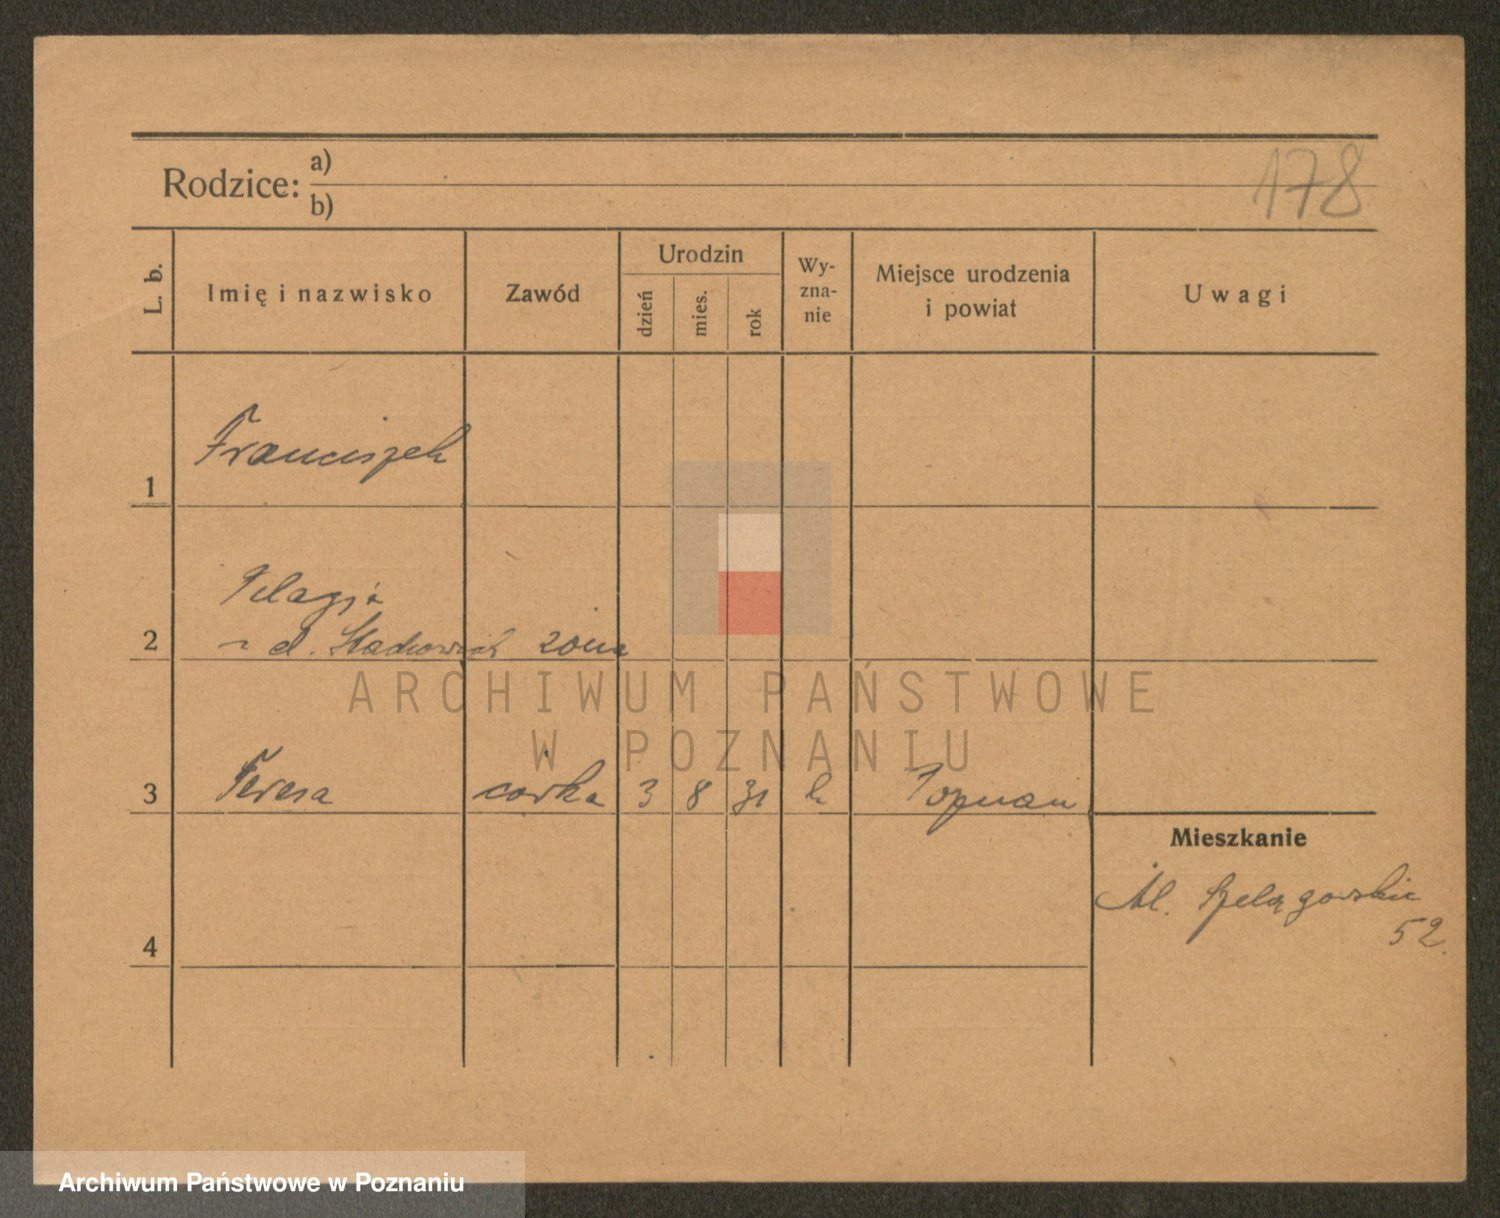 178
Rodzice: a)
b)
L. b.
Imię i nazwisko
Zawód
Urodzin
dzień
mies.
rok
Wy-
zna-
nie
Miejsce urodzenia
i powiat
Uwagi
1
Franciszek
2
Pelagja
z d. Stachowiak żona
3 Teresa córka 3 8 31 k Poznań
Mieszkanie
Al. Szelągowskie
52.
4
ARCHIWUM PAŃSTWOWE
W POZNANIU
Archiwum Państwowe w Poznaniu